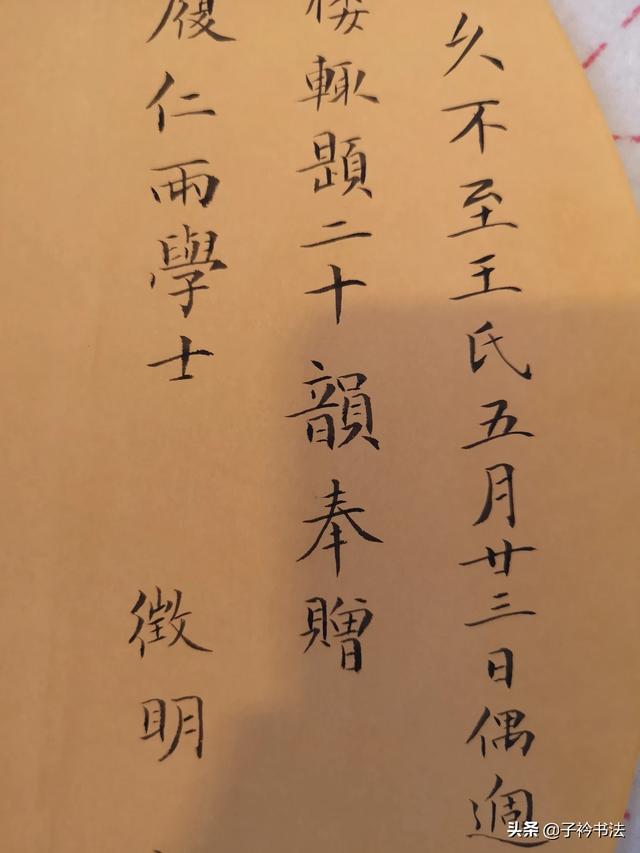 久不至王氏五月廿三日偶過
樓輒題二十韻奉贈
履仁兩學士 徵明
头条 @子衿书法